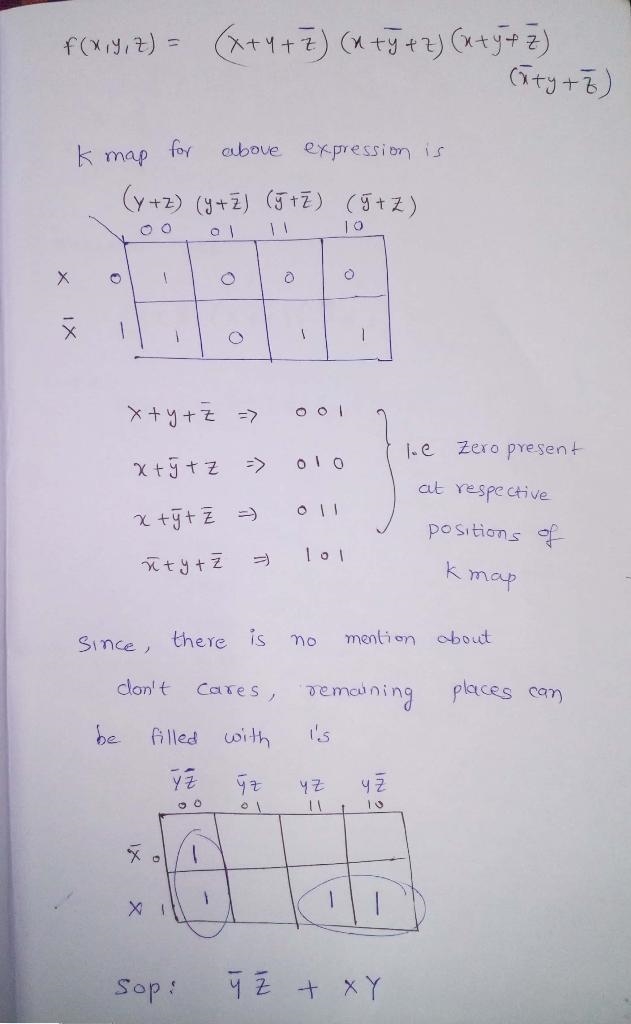 f(x,y,z) = (x+y+z̅) (x+y̅+z) (x+y̅+z̅)
(x̅+y+z̅)
K map for above expression is
(y+z) (y+z̅) (y̅+z̅) (y̅+z)
00 01 11 10
x 0 1 0 0 0
x̅ 1 1 0 1 1
x+y+z̅ => 001
x+y̅+z => 010
x+y̅+z̅ => 011
x̅+y+z̅ => 101
i.e zero present
at respective
positions of
K map
Since, there is no mention about
don't cares, remaining places can
be filled with 1's
y̅z̅ y̅z yz yz̅
00 01 11 10
x̅ 0 1
x 1 1 1 1
Sop: y̅ z̅ + x y